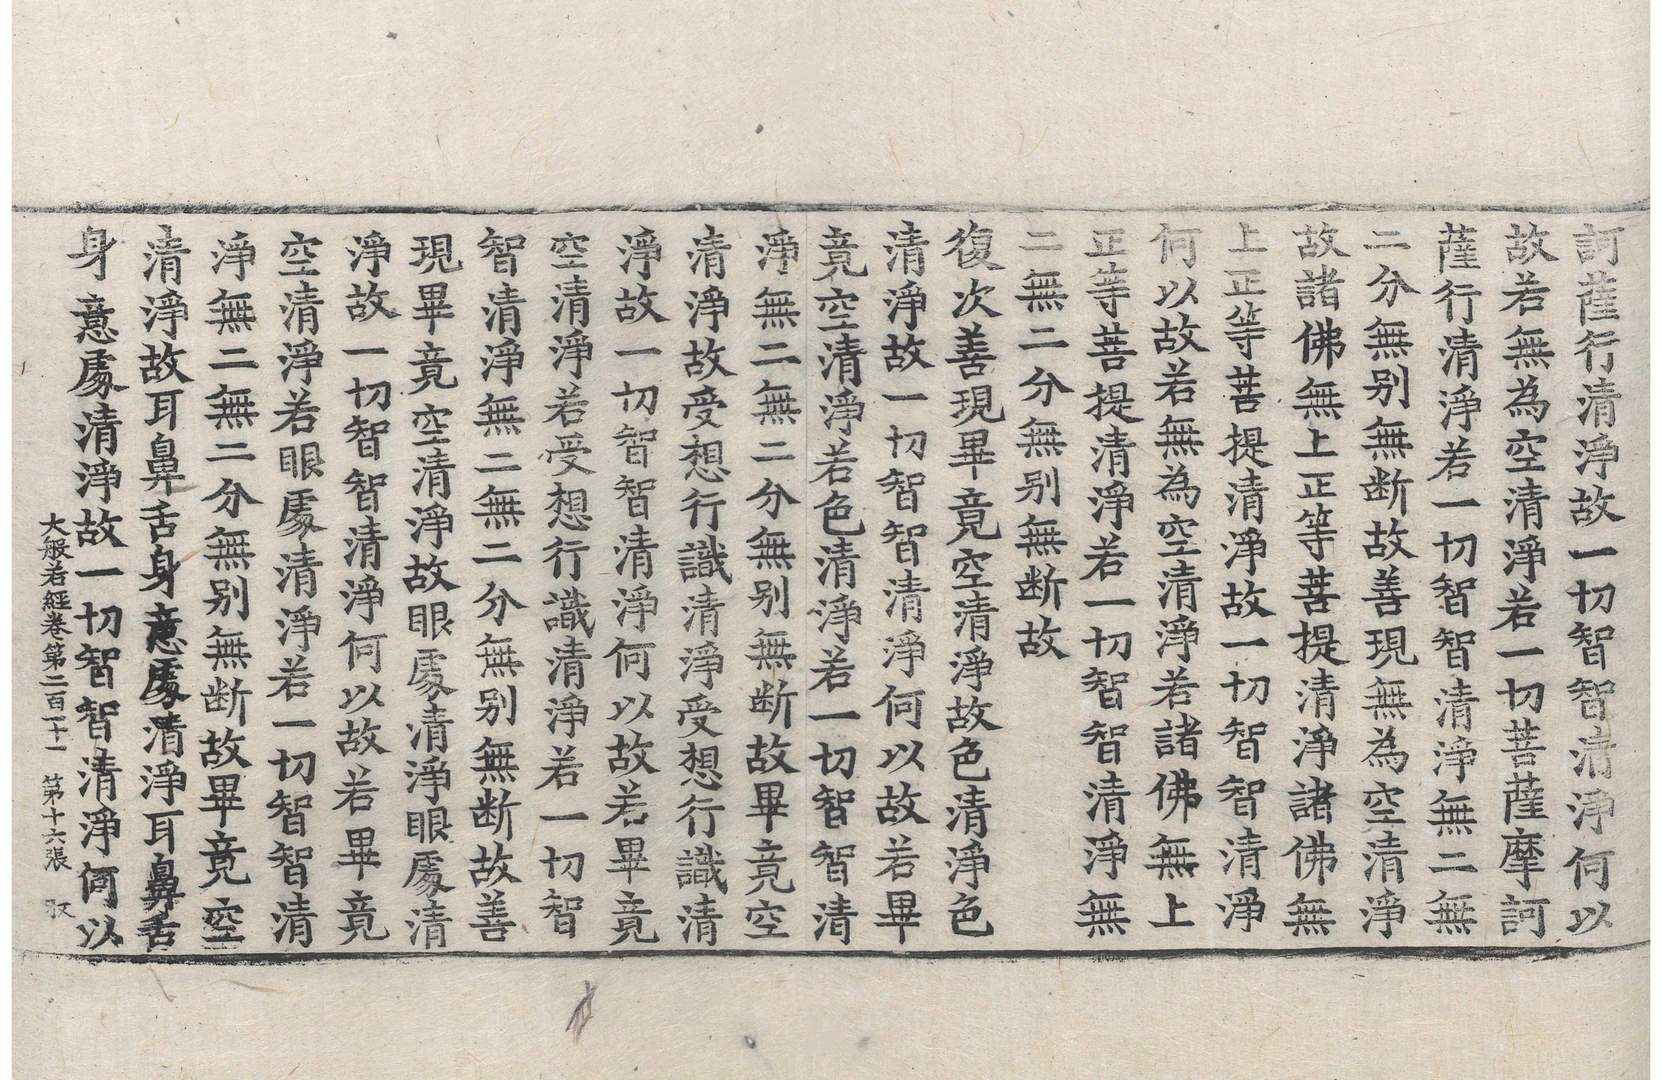 訶薩行清淨故一切智智清淨何以
故若無為空清淨若一切菩薩摩訶
薩行清淨若一切智智清淨無二無
二分無别無断故善現無為空清淨
故諸佛無上正等菩提清淨諸佛無
上正等菩提清淨故一切智智清淨
何以故若無為空清淨若諸佛無上
正等菩提清淨若一切智智清淨無
二無二分無别無断故
復次善現畢竟空清淨故色清淨色
清淨故一切智智清淨何以故若畢
竟空清淨若色清淨若一切智智清
淨無二無二分無别無断故畢竟空
清淨故受想行識清淨受想行識清
淨故一切智智清淨何以故若畢竟
空清淨若受想行識清淨若一切智
智清淨無二無二分無别無断故善
現畢竟空清淨故眼處清淨眼處清
淨故一切智智清淨何以故若畢竟
空清淨若眼處清淨若一切智智清
淨無二無二分無别無断故畢竟空
清淨故耳鼻舌身意處清淨耳鼻舌
身意處清淨故一切智智清淨何以
大般若經卷第二百一十一 第十六張